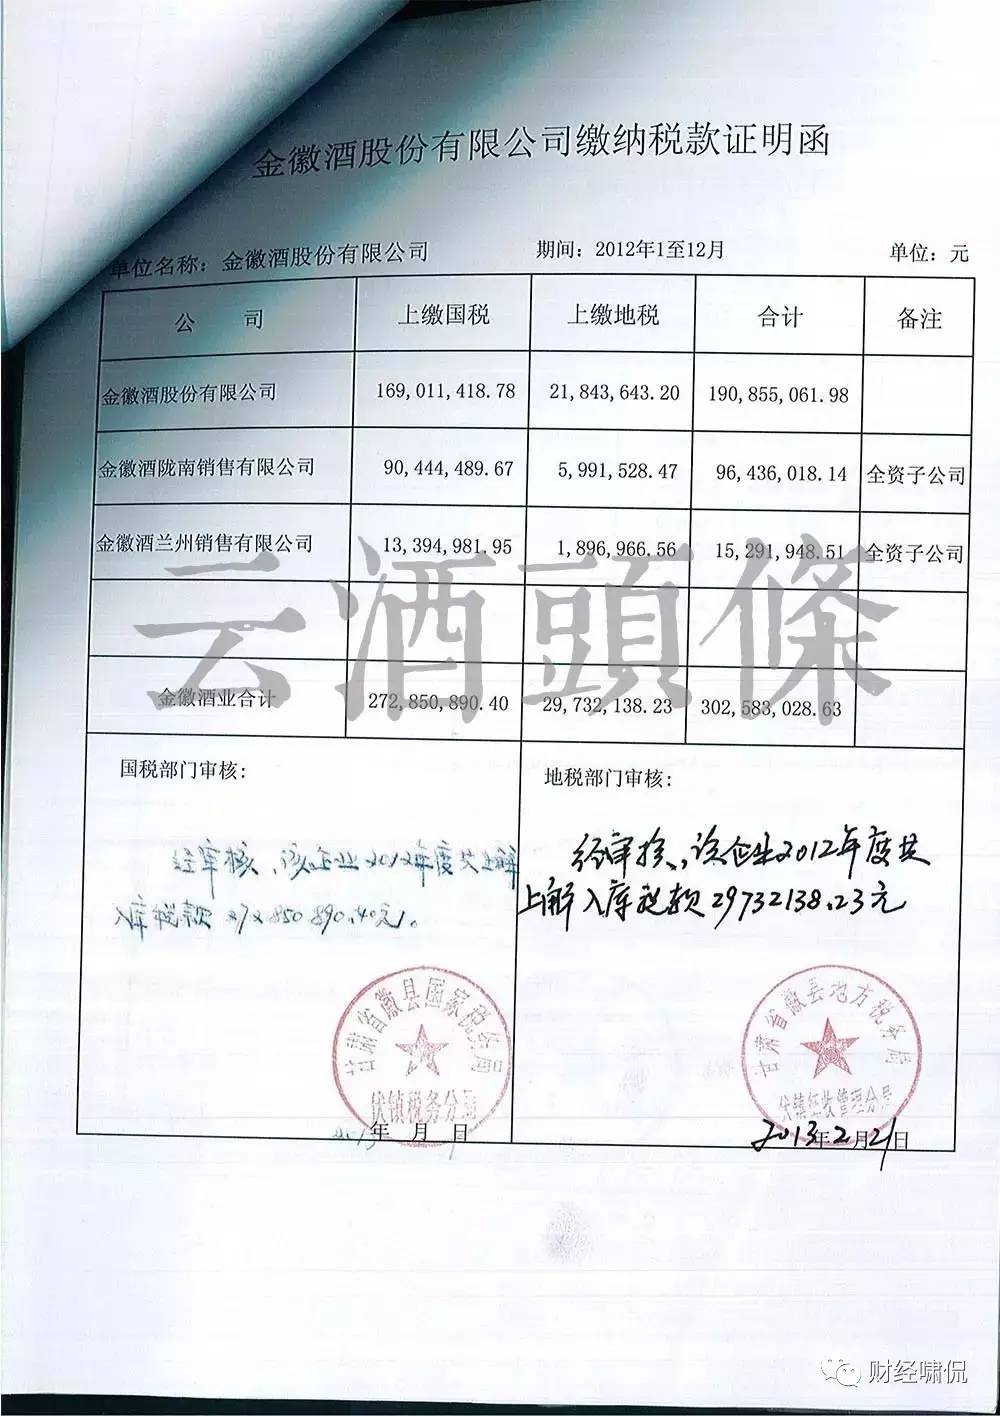 金徽酒股份有限公司缴纳税款证明函
单位名称：金徽酒股份有限公司 期间：2012年1至12月 单位：元
公 司 上缴国税 上缴地税 合计 备注
金徽酒股份有限公司 169,011,418.78 21,843,643.20 190,855,061.98
金徽酒陇南销售有限公司 90,444,489.67 5,991,528.47 96,436,018.14 全资子公司
金徽酒兰州销售有限公司 13,394,981.95 1,896,966.56 15,291,948.51 全资子公司
云酒頭條
金徽酒业合计 272,850,890.40 29,732,138.23 302,583,028.63
国税部门审核： 地税部门审核：
经审核，该企业2012年度共上解
入库税款272850890.40元。
经审核，该企业2012年度共
上解入库税款29732138.23元
甘肃省徽县国家税务局
伏镇税务分局
2013年 月 日
甘肃省徽县地方税务局
伏镇征收管理分局
2013年2月21日
财经啸侃